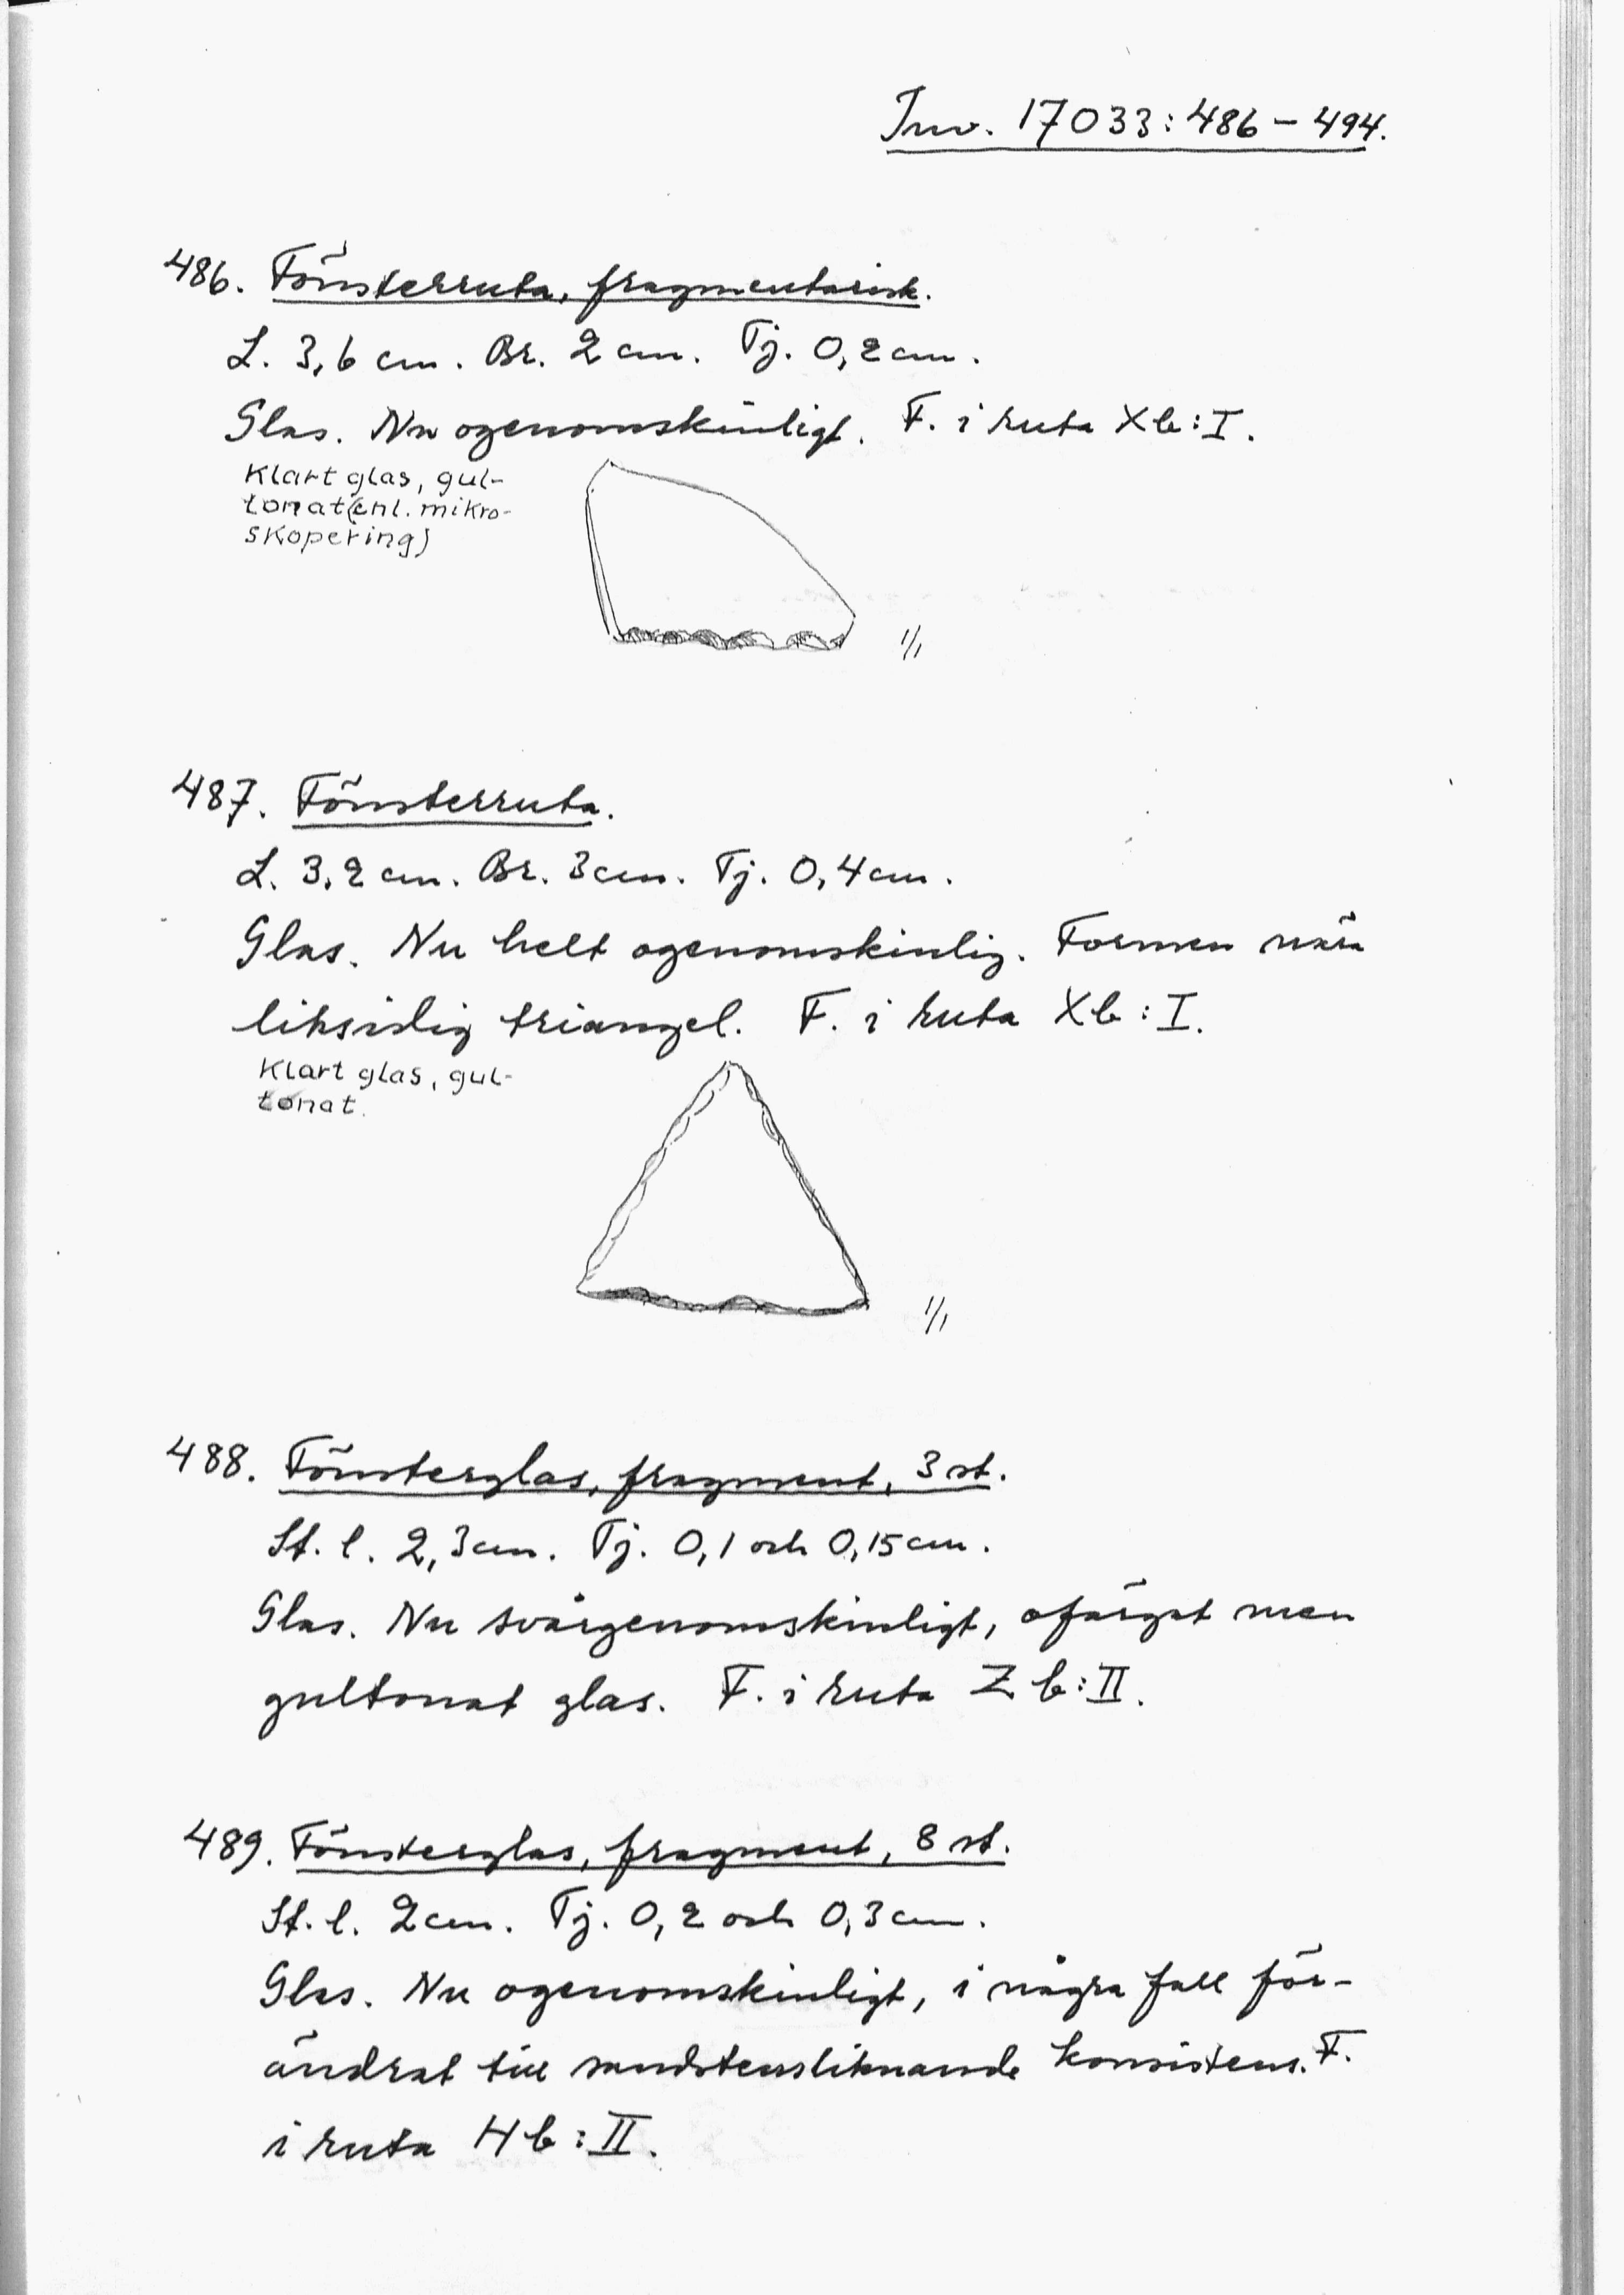 Inv. 17033:486-494.
486. Fönsterruta, fragmentarisk.
L. 3,6 cm. Br. 2 cm. Tj. 0,2 cm.
Glas. Nu ogenomskinligt. F. i ruta Xb:I.
Klart glas, gul-
tonat (enl. mikro-
skopering)
1/1
487. Fönsterruta.
L. 3,2 cm. Br. 3 cm. Tj. 0,4 cm.
Glas. Nu helt ogenomskinlig. Formen nära
liksidig triangel. F. i ruta Xb:I.
Klart glas, gul-
tonat.
1/1
488. Fönsterglas, fragment, 3 st.
St. l. 2,3 cm. Tj. 0,1 och 0,15 cm.
Glas. Nu svårgenomskinligt, ofärgat men
gultonat glas. F. i ruta Zb:II.
489. Fönsterglas, fragment, 8 st.
St. l. 2 cm. Tj. 0,2 och 0,3 cm.
Glas. Nu ogenomskinligt, i några fall för-
ändrat till sandstensliknande konsistens. F.
i ruta Hb:II.